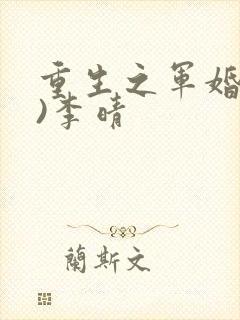 重生之军婚
)李晴
蘭斯文